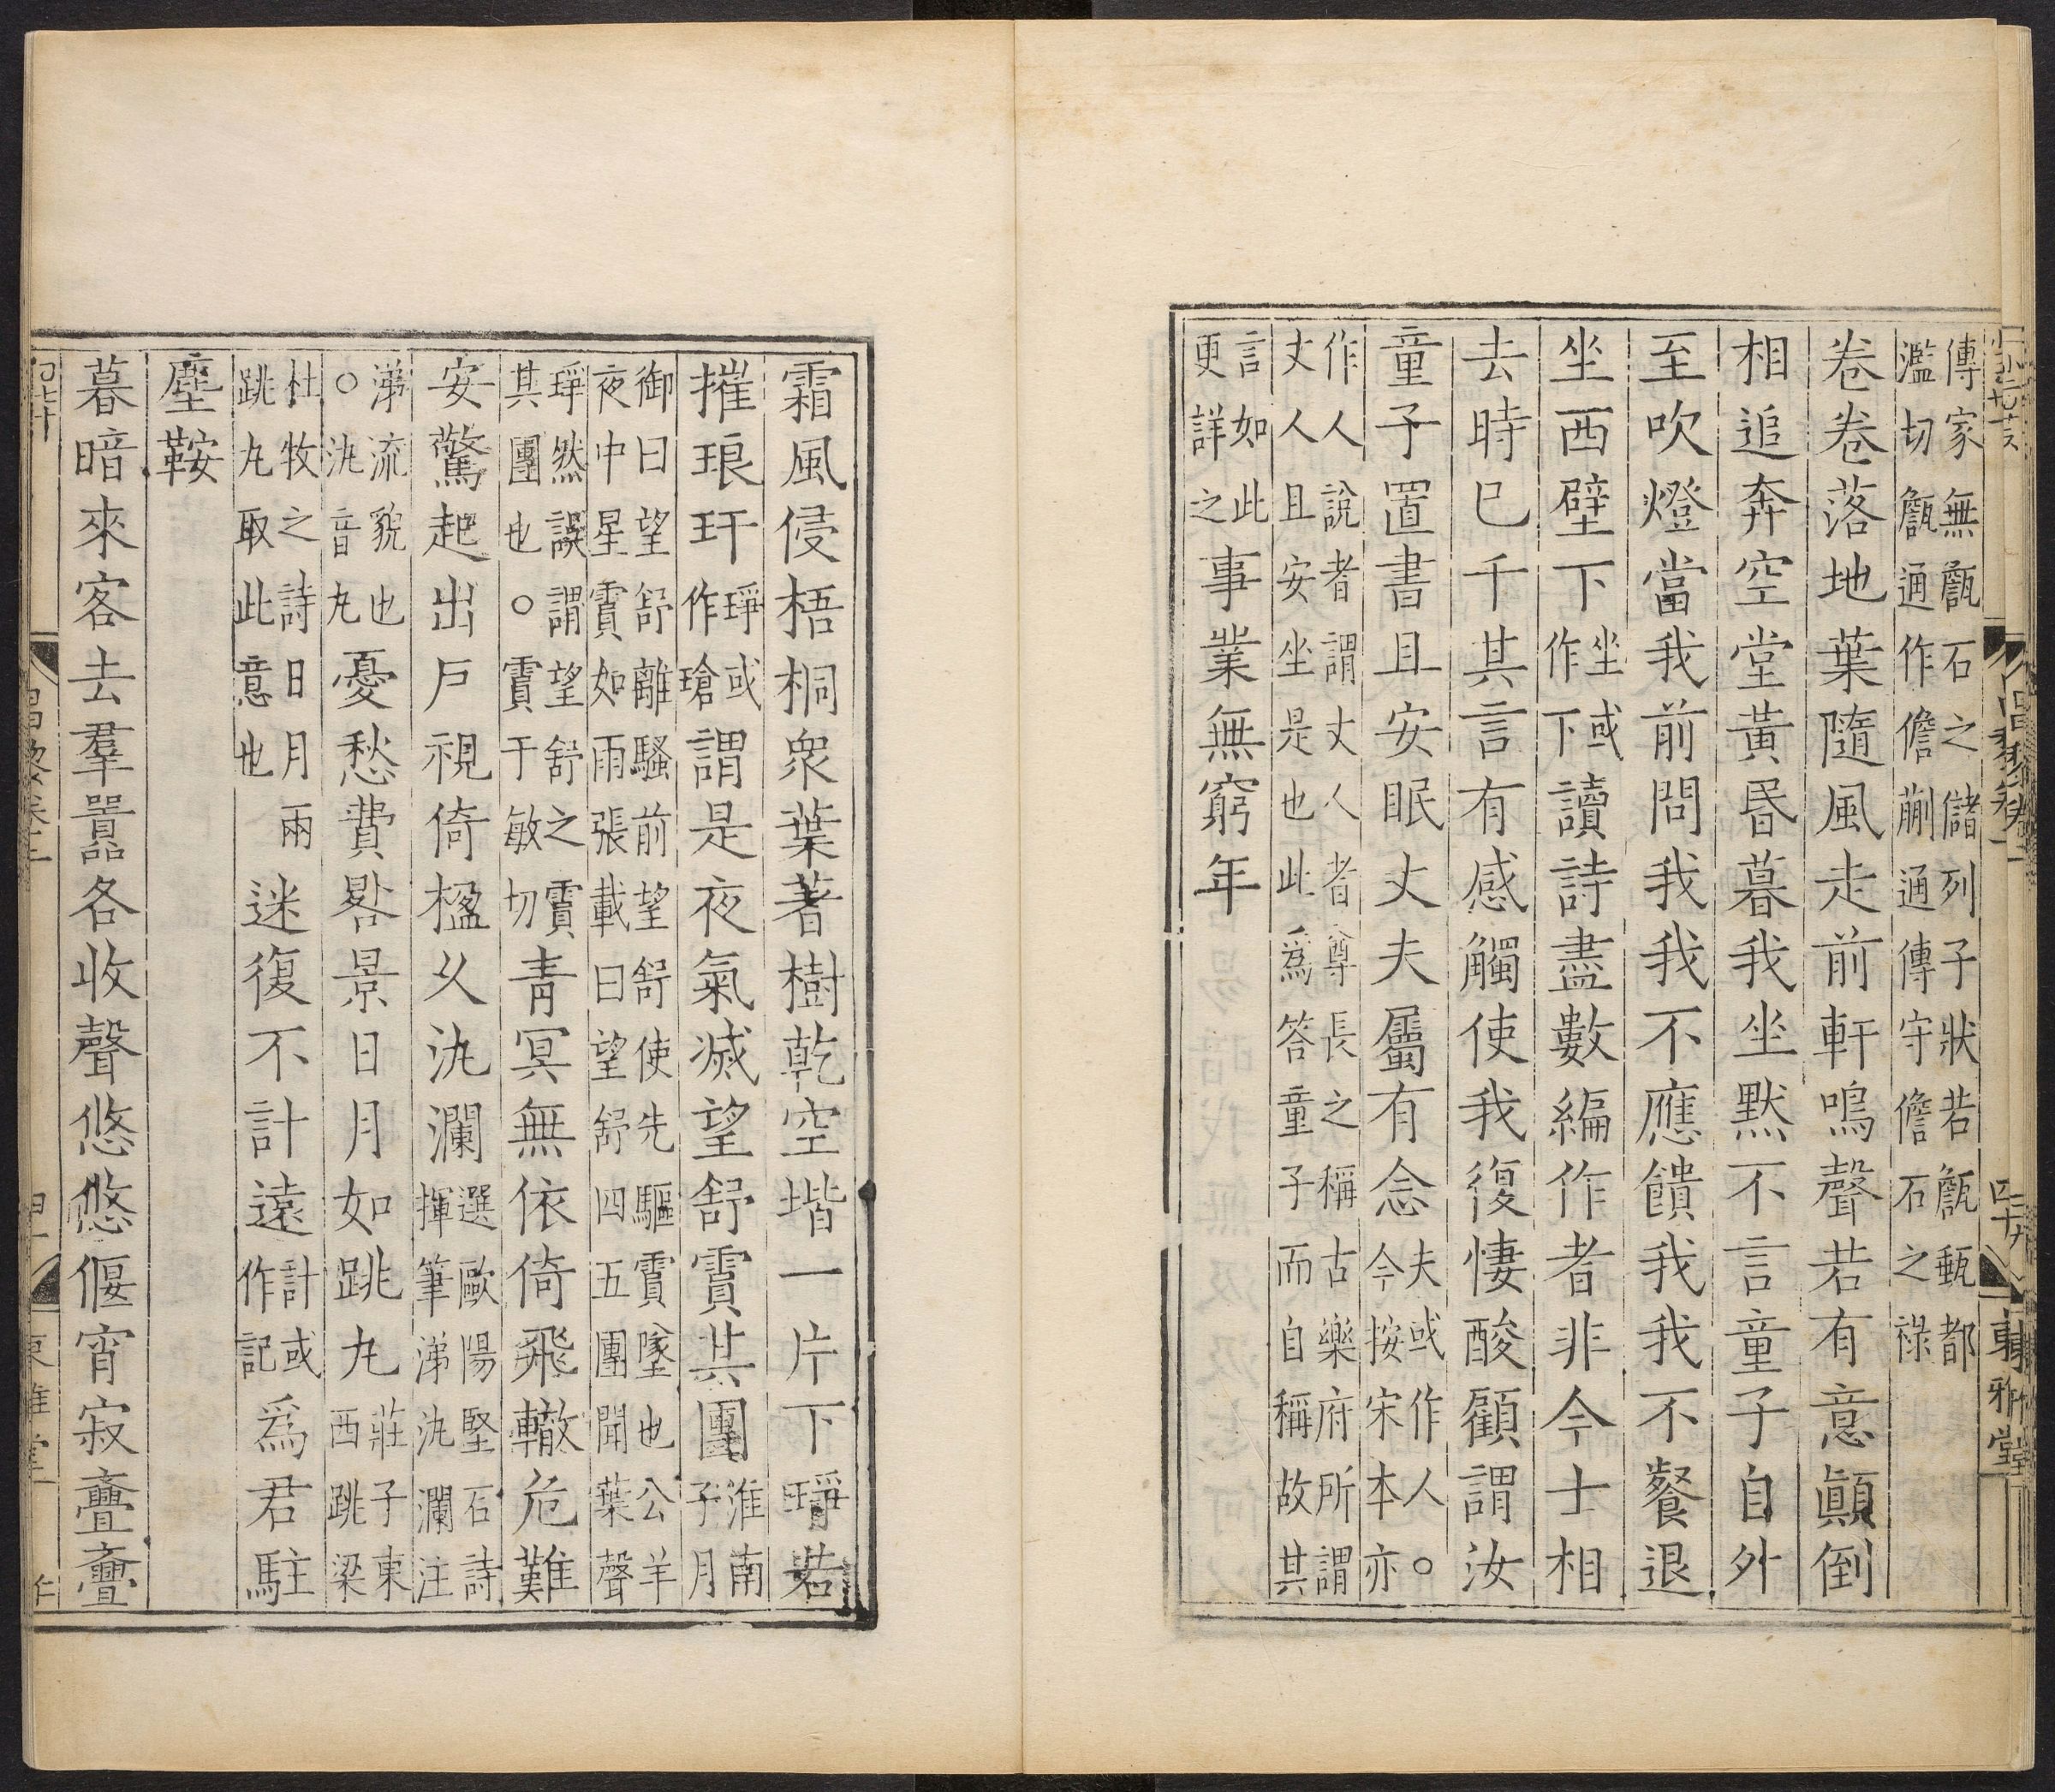 昌黎卷一 四十九 東雅堂
傳家無甔石之儲列子狀若甔甀都
濫切甔通作儋蒯通傳守儋石之祿
卷卷落地葉隨風走前軒鳴聲若有意顛倒
相追奔空堂黃昏暮我坐默不言童子自外
至吹燈當我前問我我不應饋我我不餐退
坐西壁下坐或作下讀詩盡數編作者非今士相
去時已千其言有感觸使我復悽酸顧謂汝
童子置書且安眠丈夫屬有念夫或作人○今按宋本亦
作人說者謂丈人者尊長之稱古樂府所謂
丈人且安坐是也此爲答童子而自稱故其
言如此更詳之事業無窮年
霜風侵梧桐衆葉著樹乾空堦一片下琤若
摧琅玕琤或作瑲謂是夜氣滅望舒霣其團淮南子月
御曰望舒離騷前望舒使先驅霣墜也公羊
夜中星霣如雨張載曰望舒四五團聞葉聲
琤然誤謂望舒之霣其團也○霣于敏切青冥無依倚飛轍危難
安驚起出戶視倚楹久汍瀾選歐陽堅石詩揮筆涕汍瀾注
涕流貌也○汍音丸憂愁費晷景日月如跳丸莊子東西跳梁
杜牧之詩日月兩跳丸取此意也迷復不計遠計或作記爲君駐
塵鞍
暮暗來客去羣囂各收聲悠悠偃宵寂亹亹